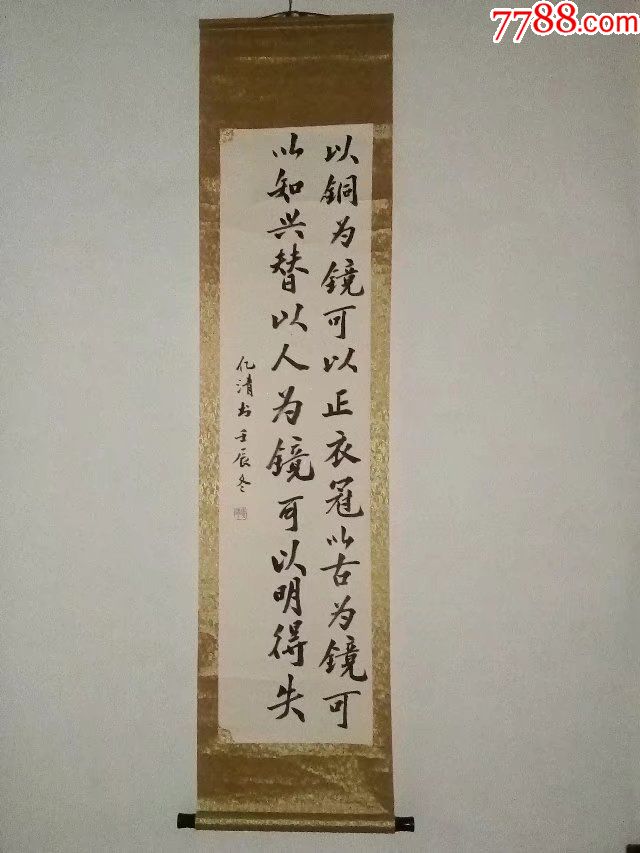 7788.com
以铜为镜可以正衣冠以古为镜可
以知兴替以人为镜可以明得失
亿清书壬辰冬